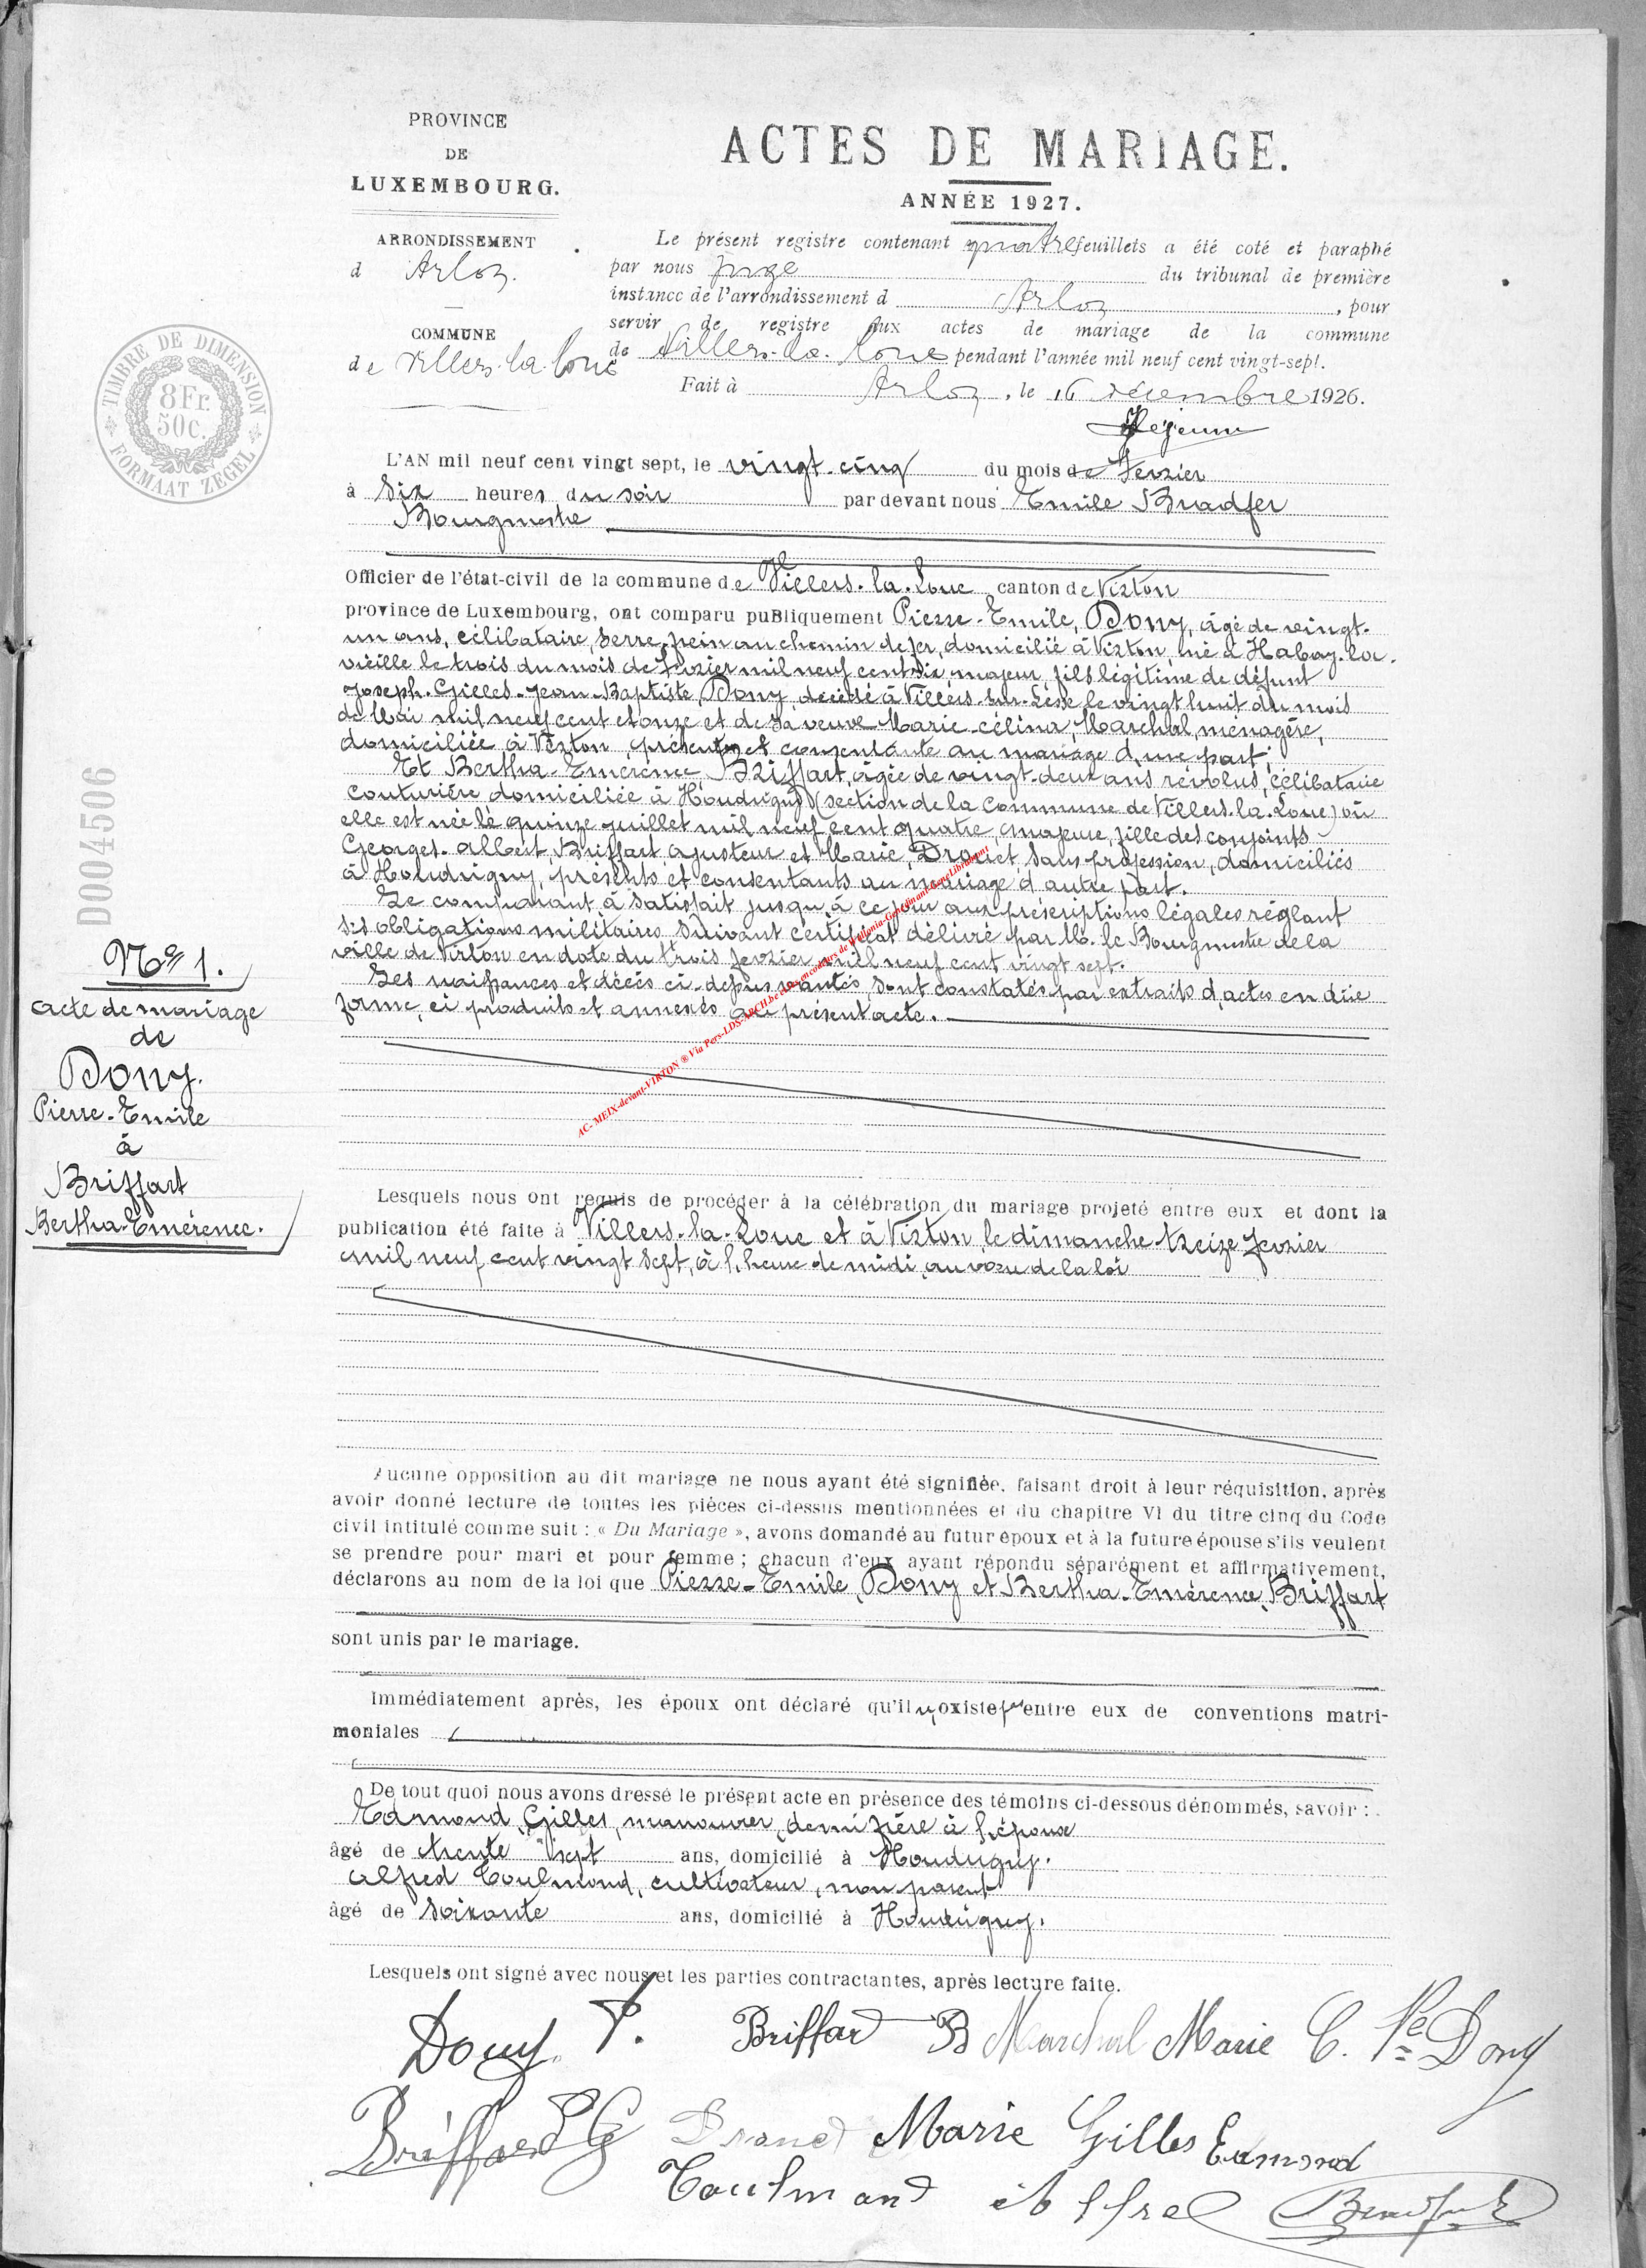 PROVINCE
DE
LUXEMBOURG.
ARRONDISSEMENT
d Arlon.
COMMUNE
de Villers-la-Loue
ACTES DE MARIAGE.
ANNÉE 1927.
Le présent registre contenant quatre feuillets a été coté et paraphé
par nous juge du tribunal de première
instance de l'arrondissement d Arlon, pour
servir de registre aux actes de mariage de la commune
de Villers-la-Loue pendant l'année mil neuf cent vingt-sept.
Fait à Arlon, le 16 décembre 1926.
TIMBRE DE DIMENSION
8 Fr.
50 c.
FORMAAT ZEGEL
L'AN mil neuf cent vingt sept, le vingt-cinq du mois de Fevrier
à Six heures du soir par devant nous Emile Bradfer
Bourgmestre
Officier de l'état-civil de la commune de Villers-la-Loue canton de Virton
province de Luxembourg, ont comparu publiquement Pierre-Emile, Dony, âgé de vingt-
un ans, célibataire, serre-frein au chemin de fer, domicilié à Virton, né à Habay-la-
vieille le trois du mois de fevrier mil neuf cent six, majeur, fils légitime de défunt
Joseph-Gilles-Jean-Baptiste, Dony, décédé à Villers-sur-Lesse le vingt huit du mois
de Mai mil neuf cent et onze et de sa veuve Marie-Célina, Marchal, ménagère,
domiciliée à Virton, présente et consentante au mariage d'une part;
Et Bertha-Emérence, Briffart, âgée de vingt-deux ans révolus, célibataire
couturière domiciliée à Houdrigny (section de la Commune de Villers-la-Loue) où
elle est née le quinze juillet mil neuf cent quatre, majeure, fille des conjoints
Georges-Albert Briffart ajusteur et Marie, Drouet, sans profession, domiciliés
à Houdrigny, présents et consentants au mariage d'autre part.
Le comparant à satisfait jusqu'à ce jour aux préscriptions légales réglant
ses obligations militaires suivant certificat délivré par M. le Bourgmestre de la
ville de Virton en date du trois fevrier mil neuf cent vingt sept.
Les naissances et décès ci-dessus vantés, sont constatés par extraits d'actes en due
forme, ci produits et annexés au présent acte.
AC- MEIX-devant-VIRTON ® Via Pers-LDS-ARCH.be et les encodeurs de Wallonia-Gen
D004506
Nº 1.
acte de mariage
de
Dony.
Pierre-Emile
à
Briffart
Bertha-Emérence.
Lesquels nous ont requis de procéder à la célébration du mariage projeté entre eux et dont la
publication été faite à Villers-la-Loue et à Virton, le dimanche treize fevrier
mil neuf cent vingt sept, à l'heure de midi, au vœu de la loi
Aucune opposition au dit mariage ne nous ayant été signifiée, faisant droit à leur réquisition, après
avoir donné lecture de toutes les pièces ci-dessus mentionnées et du chapitre VI du titre cinq du Code
civil intitulé comme suit : « Du Mariage », avons domandé au futur époux et à la future épouse s'ils veulent
se prendre pour mari et pour femme ; chacun d'eux ayant répondu séparément et affirmativement,
déclarons au nom de la loi que Pierre-Emile, Dony et Bertha-Emérence, Briffart
sont unis par le mariage.
Immédiatement après, les époux ont déclaré qu'il n'y existe pas entre eux de conventions matri-
moniales
De tout quoi nous avons dressé le présent acte en présence des témoins ci-dessous dénommés, savoir :
Edmond, Gilles, manouvrier, demi frère à l'épouse
âgé de trente sept ans, domicilié à Houdrigny.
Alfred Toulmond, cultivateur, non parent
âgé de soixante ans, domicilié à Houdrigny.
Lesquels ont signé avec nous et les parties contractantes, après lecture faite.
Dony P. Briffart B Marchal Marie C. Ve Dony
Briffard G Drouet Marie Gilles Edmond
Toulmond Alfred Bradfer E